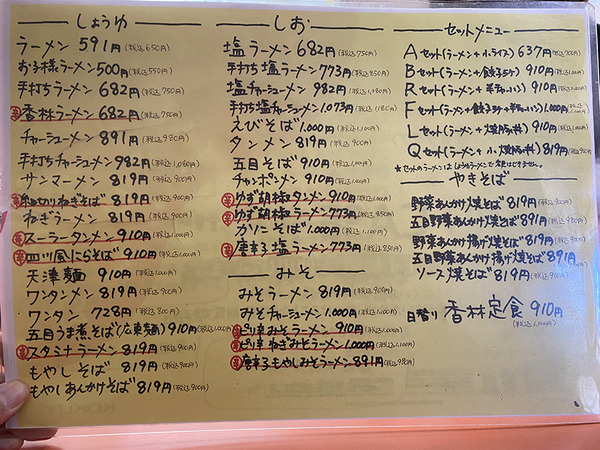 しょうゆ
ラーメン 591円(税込650円)
お子様ラーメン500円(税込550円)
手打ちラーメン 682円(税込750円)
辛 香林ラーメン 682円(税込750円)
チャーシューメン 891円(税込980円)
手打ちチャーシューメン 982円(税込1,080円)
サンマーメン 819円(税込900円)
辛 細切りねぎそば 819円(税込900円)
ねぎラーメン 819円(税込900円)
辛 スーラータンメン 910円(税込1,000円)
辛 四川風にらそば 910円(税込1,000円)
天津麺 910円(税込1,000円)
ワンタンメン 819円(税込900円)
ワンタン 728円(税込800円)
五目うま煮そば(広東麺)910円(税込1,000円)
辛 スタミナラーメン 819円(税込900円)
もやしそば 819円(税込900円)
もやしあんかけそば 819円(税込900円)
しお
塩ラーメン 682円(税込750円)
手打ち塩ラーメン 773円(税込850円)
塩チャーシューメン 982円(税込1,080円)
手打ち塩チャーシューメン 1,073円(税込1,180円)
えびそば 1,000円(税込1,100円)
タンメン 819円(税込900円)
五目そば 910円(税込1,000円)
チャンポンメン 910円(税込1,000円)
辛 ゆず胡椒タンメン 910円(税込1,000円)
辛 ゆず胡椒ラーメン 773円(税込850円)
かにそば 1,000円(税込1,100円)
辛 唐辛子塩ラーメン 773円(税込850円)
みそ
みそラーメン 819円(税込900円)
みそチャーシューメン 1,000円(税込1,100円)
辛 ピリ辛みそラーメン 910円(税込1,000円)
辛 ピリ辛ねぎみそラーメン 1,000円(税込1,100円)
辛 唐辛子もやしみそラーメン 891円(税込980円)
セットメニュー
Aセット(ラーメン+小ライス) 637円(税込700円)
Bセット(ラーメン+餃子3ケ) 910円(税込1,000円)
Rセット(ラーメン+半チャーハン) 910円(税込1,000円)
Fセット(ラーメン+餃子3ケ+半チャーハン) 1,000円(税込1,100円)
Lセット(ラーメン+焼豚丼) 910円(税込1,000円)
Qセット(ラーメン+小焼豚丼) 819円(税込900円)
★セットのラーメンはしょうゆラーメンで変更はできません。
やきそば
野菜あんかけ焼そば 819円(税込900円)
五目野菜あんかけ焼そば 891円(税込980円)
野菜あんかけ揚げ焼そば 819円(税込900円)
五目野菜あんかけ揚げ焼そば 891円(税込980円)
ソース焼そば 819円(税込900円)
日替り 香林定食 910円
(税込1,000円)